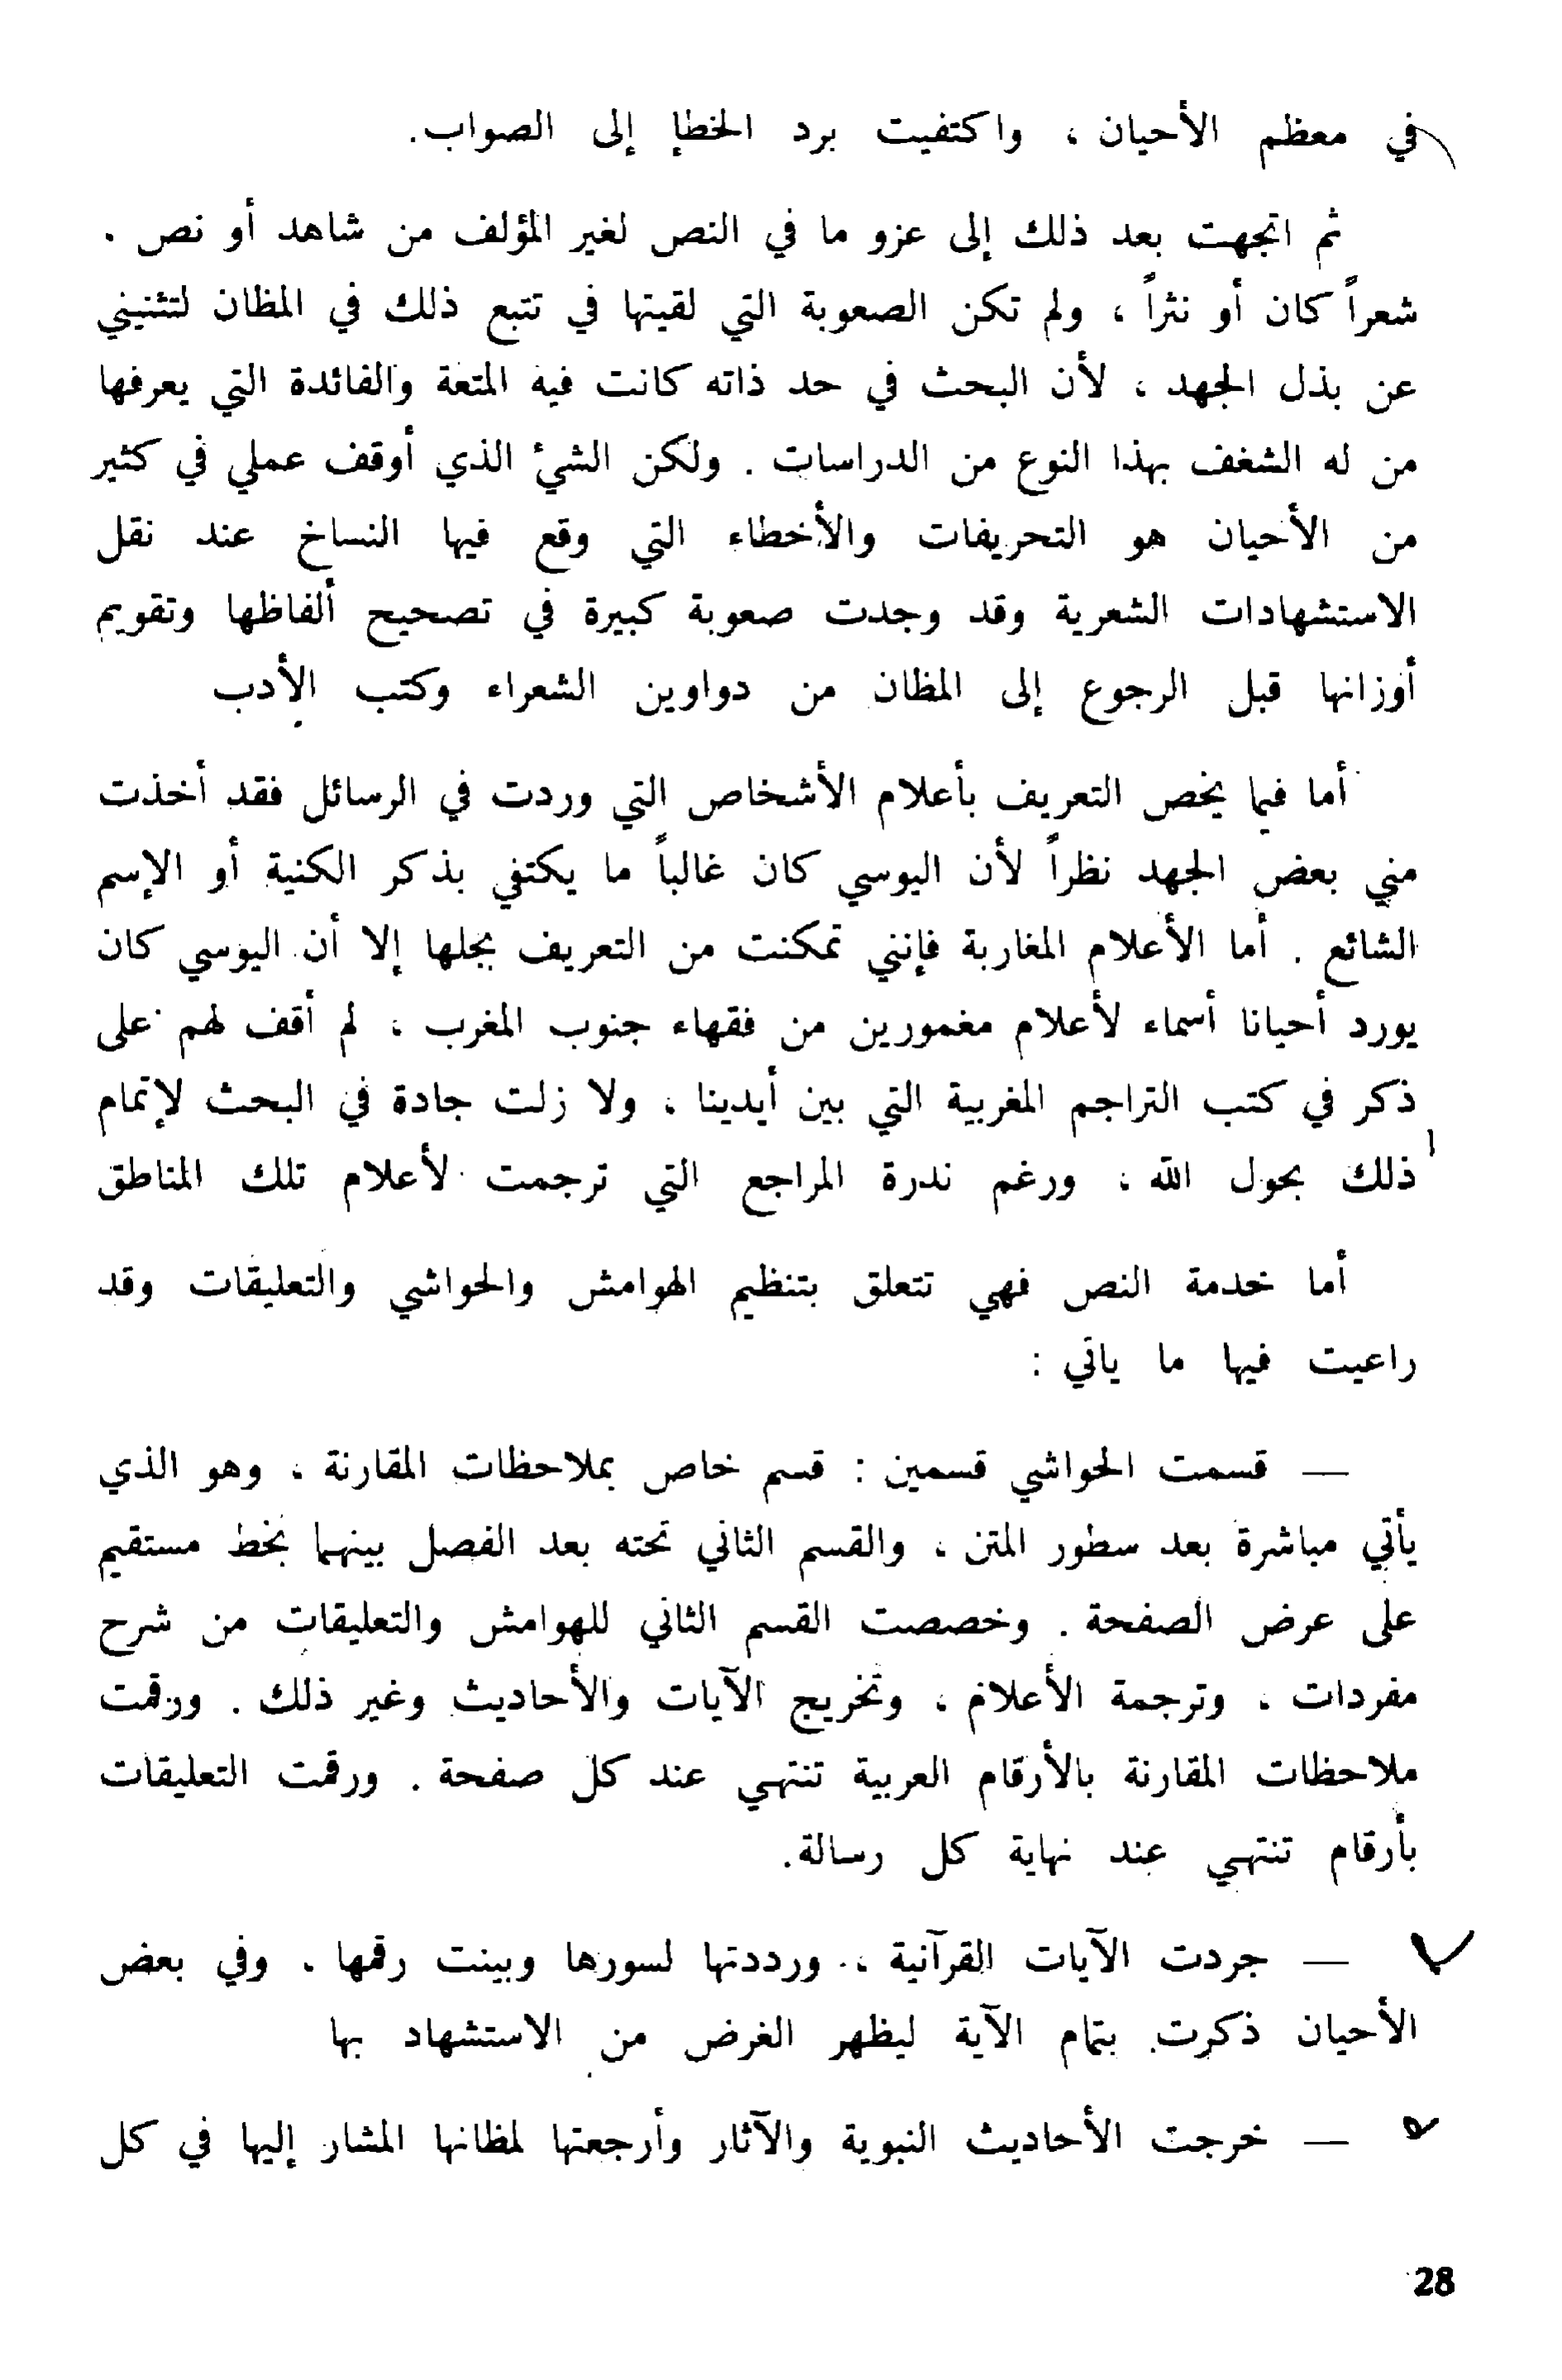 في معظم الأحيان ، واكتفيت برد الخطإ إلى الصواب.
ثم اتجهت بعد ذلك إلى عزو ما في النص لغير المؤلف من شاهد أو نص .
شعراً كان أو نثراً ، ولم تكن الصعوبة التي لقيتها في تتبع ذلك في المظان لتثنيني
عن بذل الجهد ، لأن البحث في حد ذاته كانت فيه المتعة والفائدة التي يعرفها
من له الشغف بهذا النوع من الدراسات . ولكن الشئ الذي أوقف عملي في كثير
من الأحيان هو التحريفات والأخطاء التي وقع فيها النساخ عند نقل
الاستشهادات الشعرية وقد وجدت صعوبة كبيرة في تصحيح ألفاظها وتقويم
أوزانها قبل الرجوع إلى المظان من دواوين الشعراء وكتب الأدب
أما فيما يخص التعريف بأعلام الأشخاص التي وردت في الرسائل فقد أخذت
مني بعض الجهد نظراً لأن اليوسي كان غالباً ما يكتفي بذكر الكنية أو الإسم
الشائع . أما الأعلام المغاربة فإنني تمكنت من التعريف بجلها إلا أن اليوسي كان
يورد أحيانا أسماء لأعلام مغمورين من فقهاء جنوب المغرب ، لم أقف لهم على
ذكر في كتب التراجم المغربية التي بين أيدينا ، ولا زلت جادة في البحث لإتمام
ذلك بحول الله ، ورغم ندرة المراجع التي ترجمت لأعلام تلك المناطق
أما خدمة النص فهي تتعلق بتنظيم الهوامش والحواشي والتعليقات وقد
راعيت فيها ما ياتي :
— قسمت الحواشي قسمين : قسم خاص بملاحظات المقارنة ، وهو الذي
يأتي مباشرة بعد سطور المتن ، والقسم الثاني تحته بعد الفصل بينهما بخط مستقيم
على عرض الصفحة . وخصصت القسم الثاني للهوامش والتعليقات من شرح
مفردات ، وترجمة الأعلام ، وتخريج الآيات والأحاديث وغير ذلك . ورقمت
ملاحظات المقارنة بالأرقام العربية تنتهي عند كل صفحة . ورقمت التعليقات
بأرقام تنتهي عند نهاية كل رسالة.
— جردت الآيات القرآنية ، ورددتها لسورها وبينت رقمها ، وفي بعض
الأحيان ذكرت بتمام الآية ليظهر الغرض من الاستشهاد بها
— خرجت الأحاديث النبوية والآثار وأرجعتها لمظانها المشار إليها في كل
28